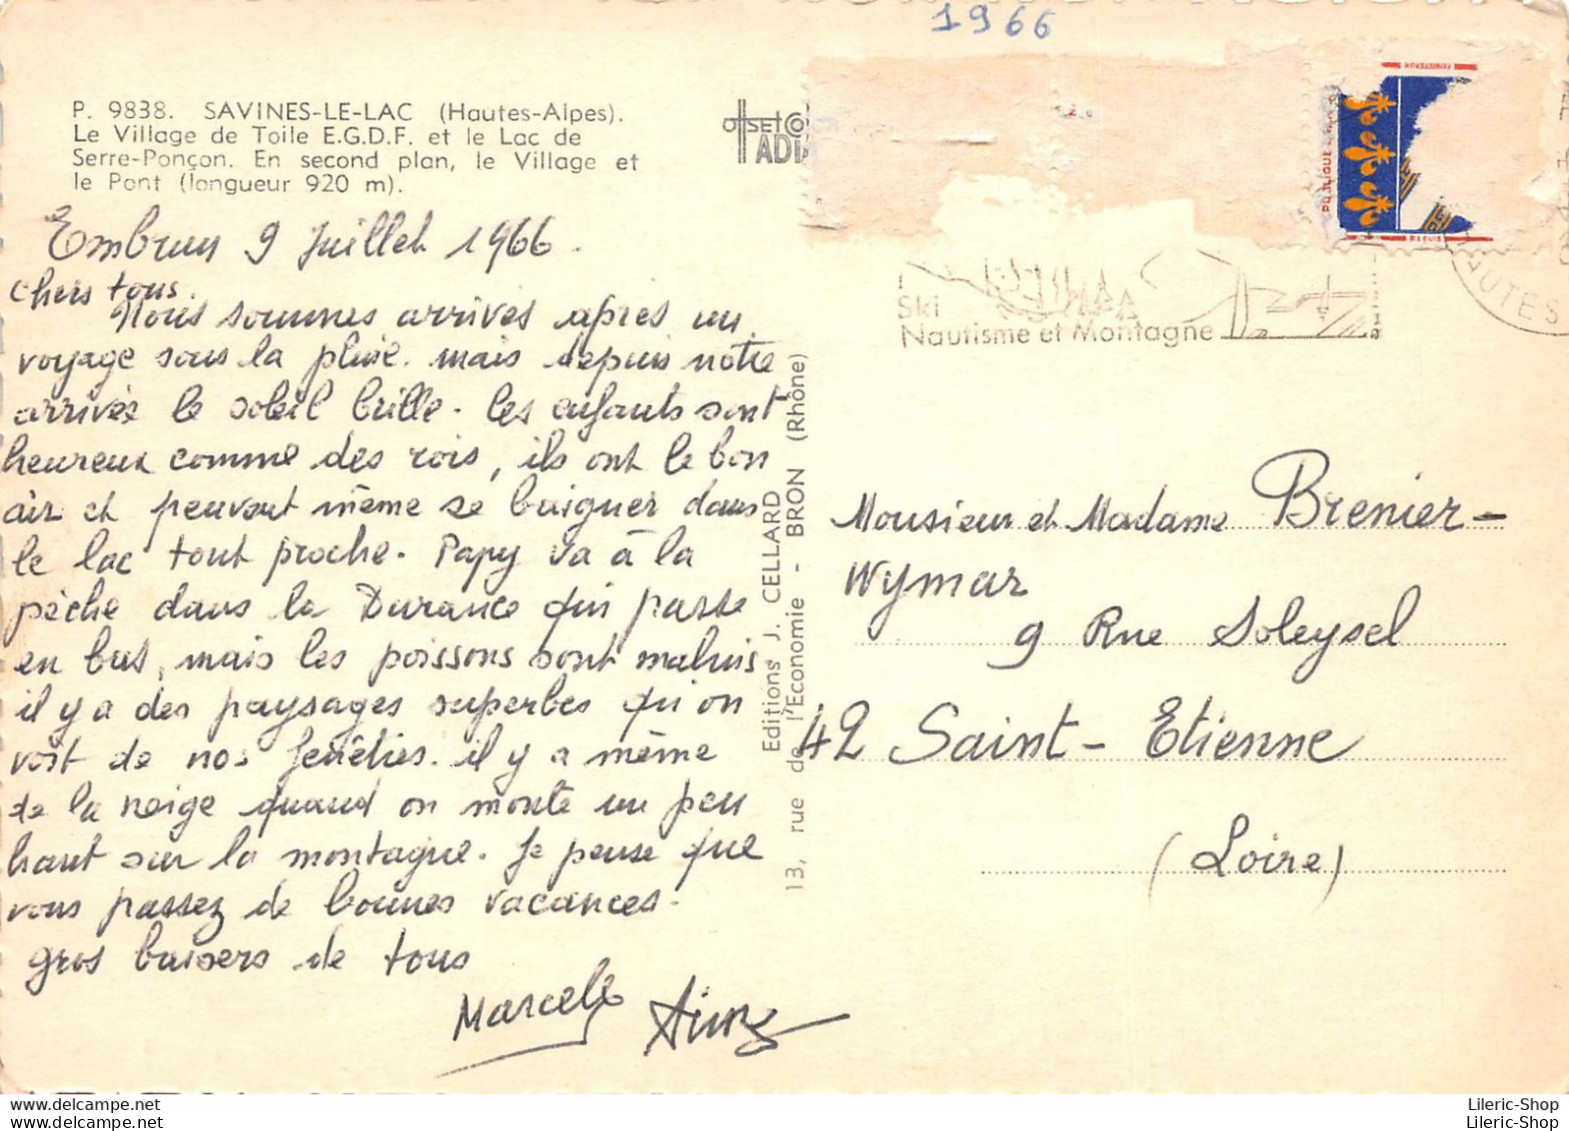 1966
P. 9838. SAVINES-LE-LAC (Hautes-Alpes).
Le Village de Toile E.G.D.F. et le Lac de
Serre-Ponçon. En second plan, le Village et
le Pont (longueur 920 m).
OFFSET CO
ADIA
Embrun 9 Juillet 1966.
Chers tous.
Nous sommes arrivés après un
voyage sous la pluie. mais depuis notre
arrivée le soleil brille. les enfants sont
heureux comme des rois, ils ont le bon
air et peuvent même se baigner dans
le lac tout proche. Papy va à la
pêche dans la Durance qui passe
en bas, mais les poissons sont malins
il y a des paysages superbes qu'on
voit de nos fenêtres. il y a même
de la neige quand on monte un peu
haut sur la montagne. Je pense que
vous passez de bonnes vacances.
gros baisers de tous
Marcele
Editions J. CELLARD
13, rue de l'Economie - BRON (Rhône)
Ski
Nautisme et Montagne
HAUTES
Monsieur et Madame Brenier-
Wymar
9 Rue Soleysel
42 Saint-Etienne
(Loire)
Lileric-Shop
Lileric-Shop